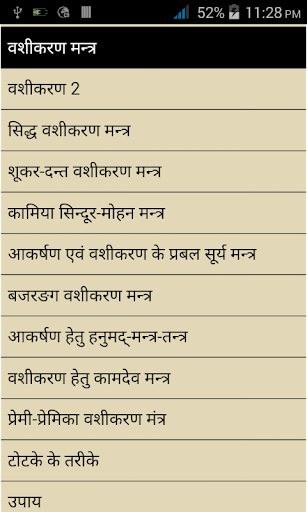 52% 11:28PM
वशीकरण मन्त्र
वशीकरण 2
सिद्ध वशीकरण मन्त्र
शूकर-दन्त वशीकरण मन्त्र
कामिया सिन्दूर-मोहन मन्त्र
आकर्षण एवं वशीकरण के प्रबल सूर्य मन्त्र
बजरङग वशीकरण मन्त्र
आकर्षण हेतु हनुमद्-मन्त्र-तन्त्र
वशीकरण हेतु कामदेव मन्त्र
प्रेमी-प्रेमिका वशीकरण मंत्र
टोटके के तरीके
उपाय